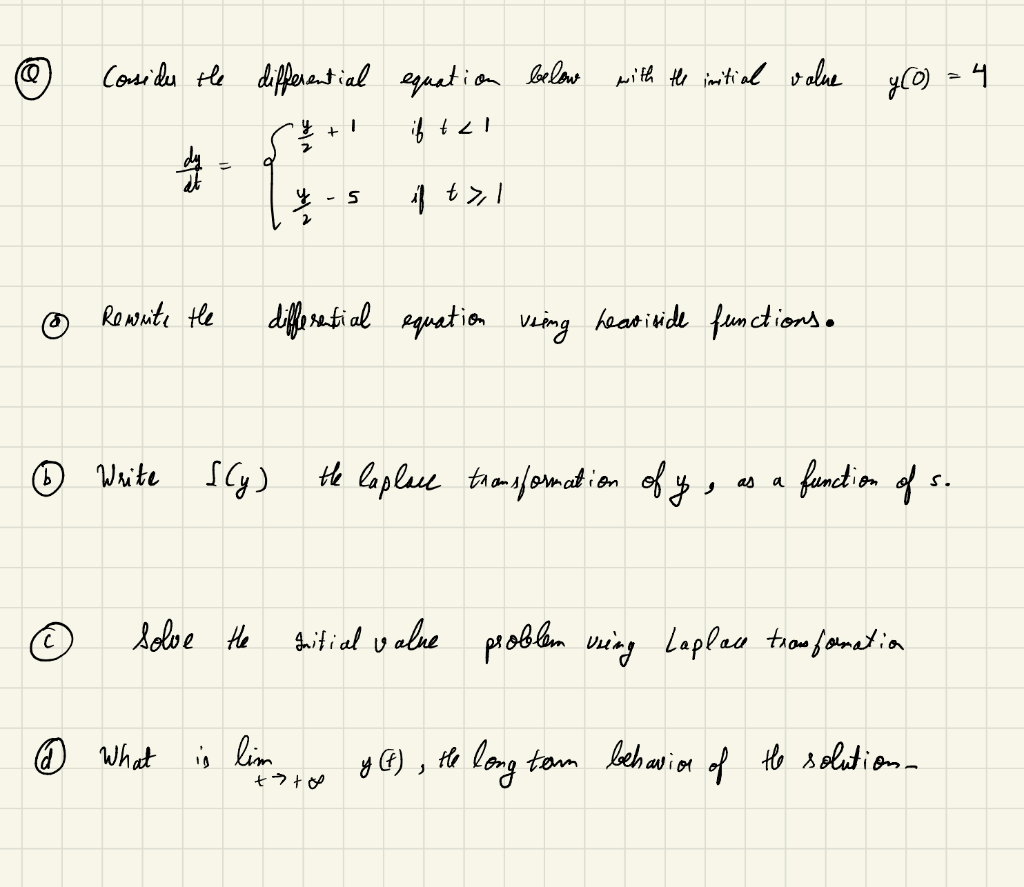 Q Consider the differential equation below with the initial value y(0) = 4
dy/dt = { y/2 + 1 if t < 1
y/2 - 5 if t ⩾ 1
a Rewrite the differential equation using heaviside functions.
b Write L(y) the laplace transformation of y, as a function of s.
c Solve the initial value problem using Laplace transformation
d What is lim t→+∞ y(t), the long term behavior of the solution-